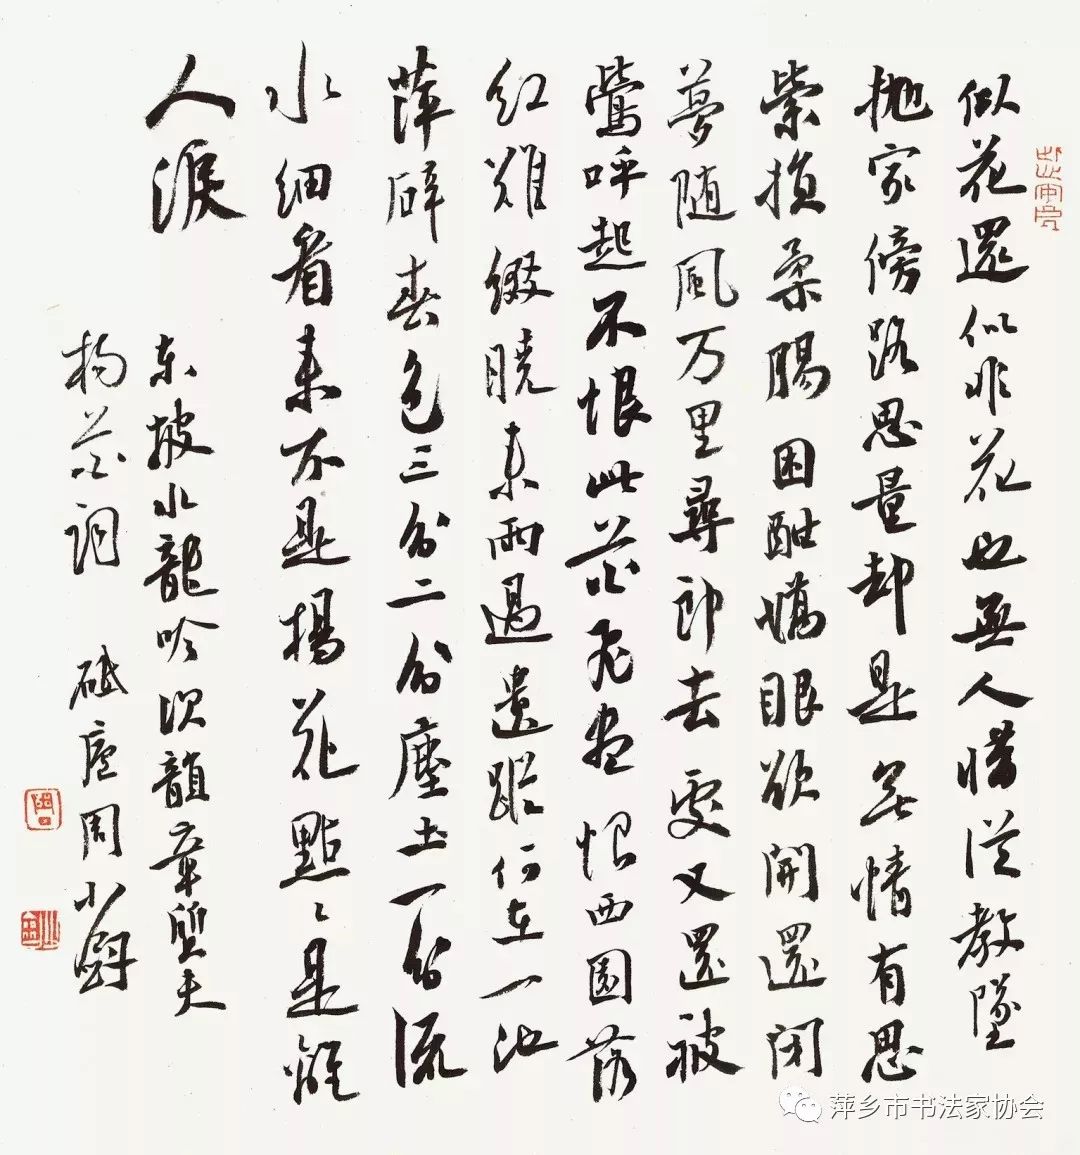 似花還似非花也無人惜從教墜
抛家傍路思量却是無情有思
縈損柔腸困酣嬌眼欲開還閉
夢随風万里尋郎去處又還被
鶯呼起不恨此花飛盡恨西園落
红難綴曉来雨過遺蹤何在一池
萍碎春色三分二分塵土一分流
水細看来不是楊花點〻是離
人淚
东坡水龍吟次韻章質夫
楊花詞 砥廬周小
萍乡市书法家协会